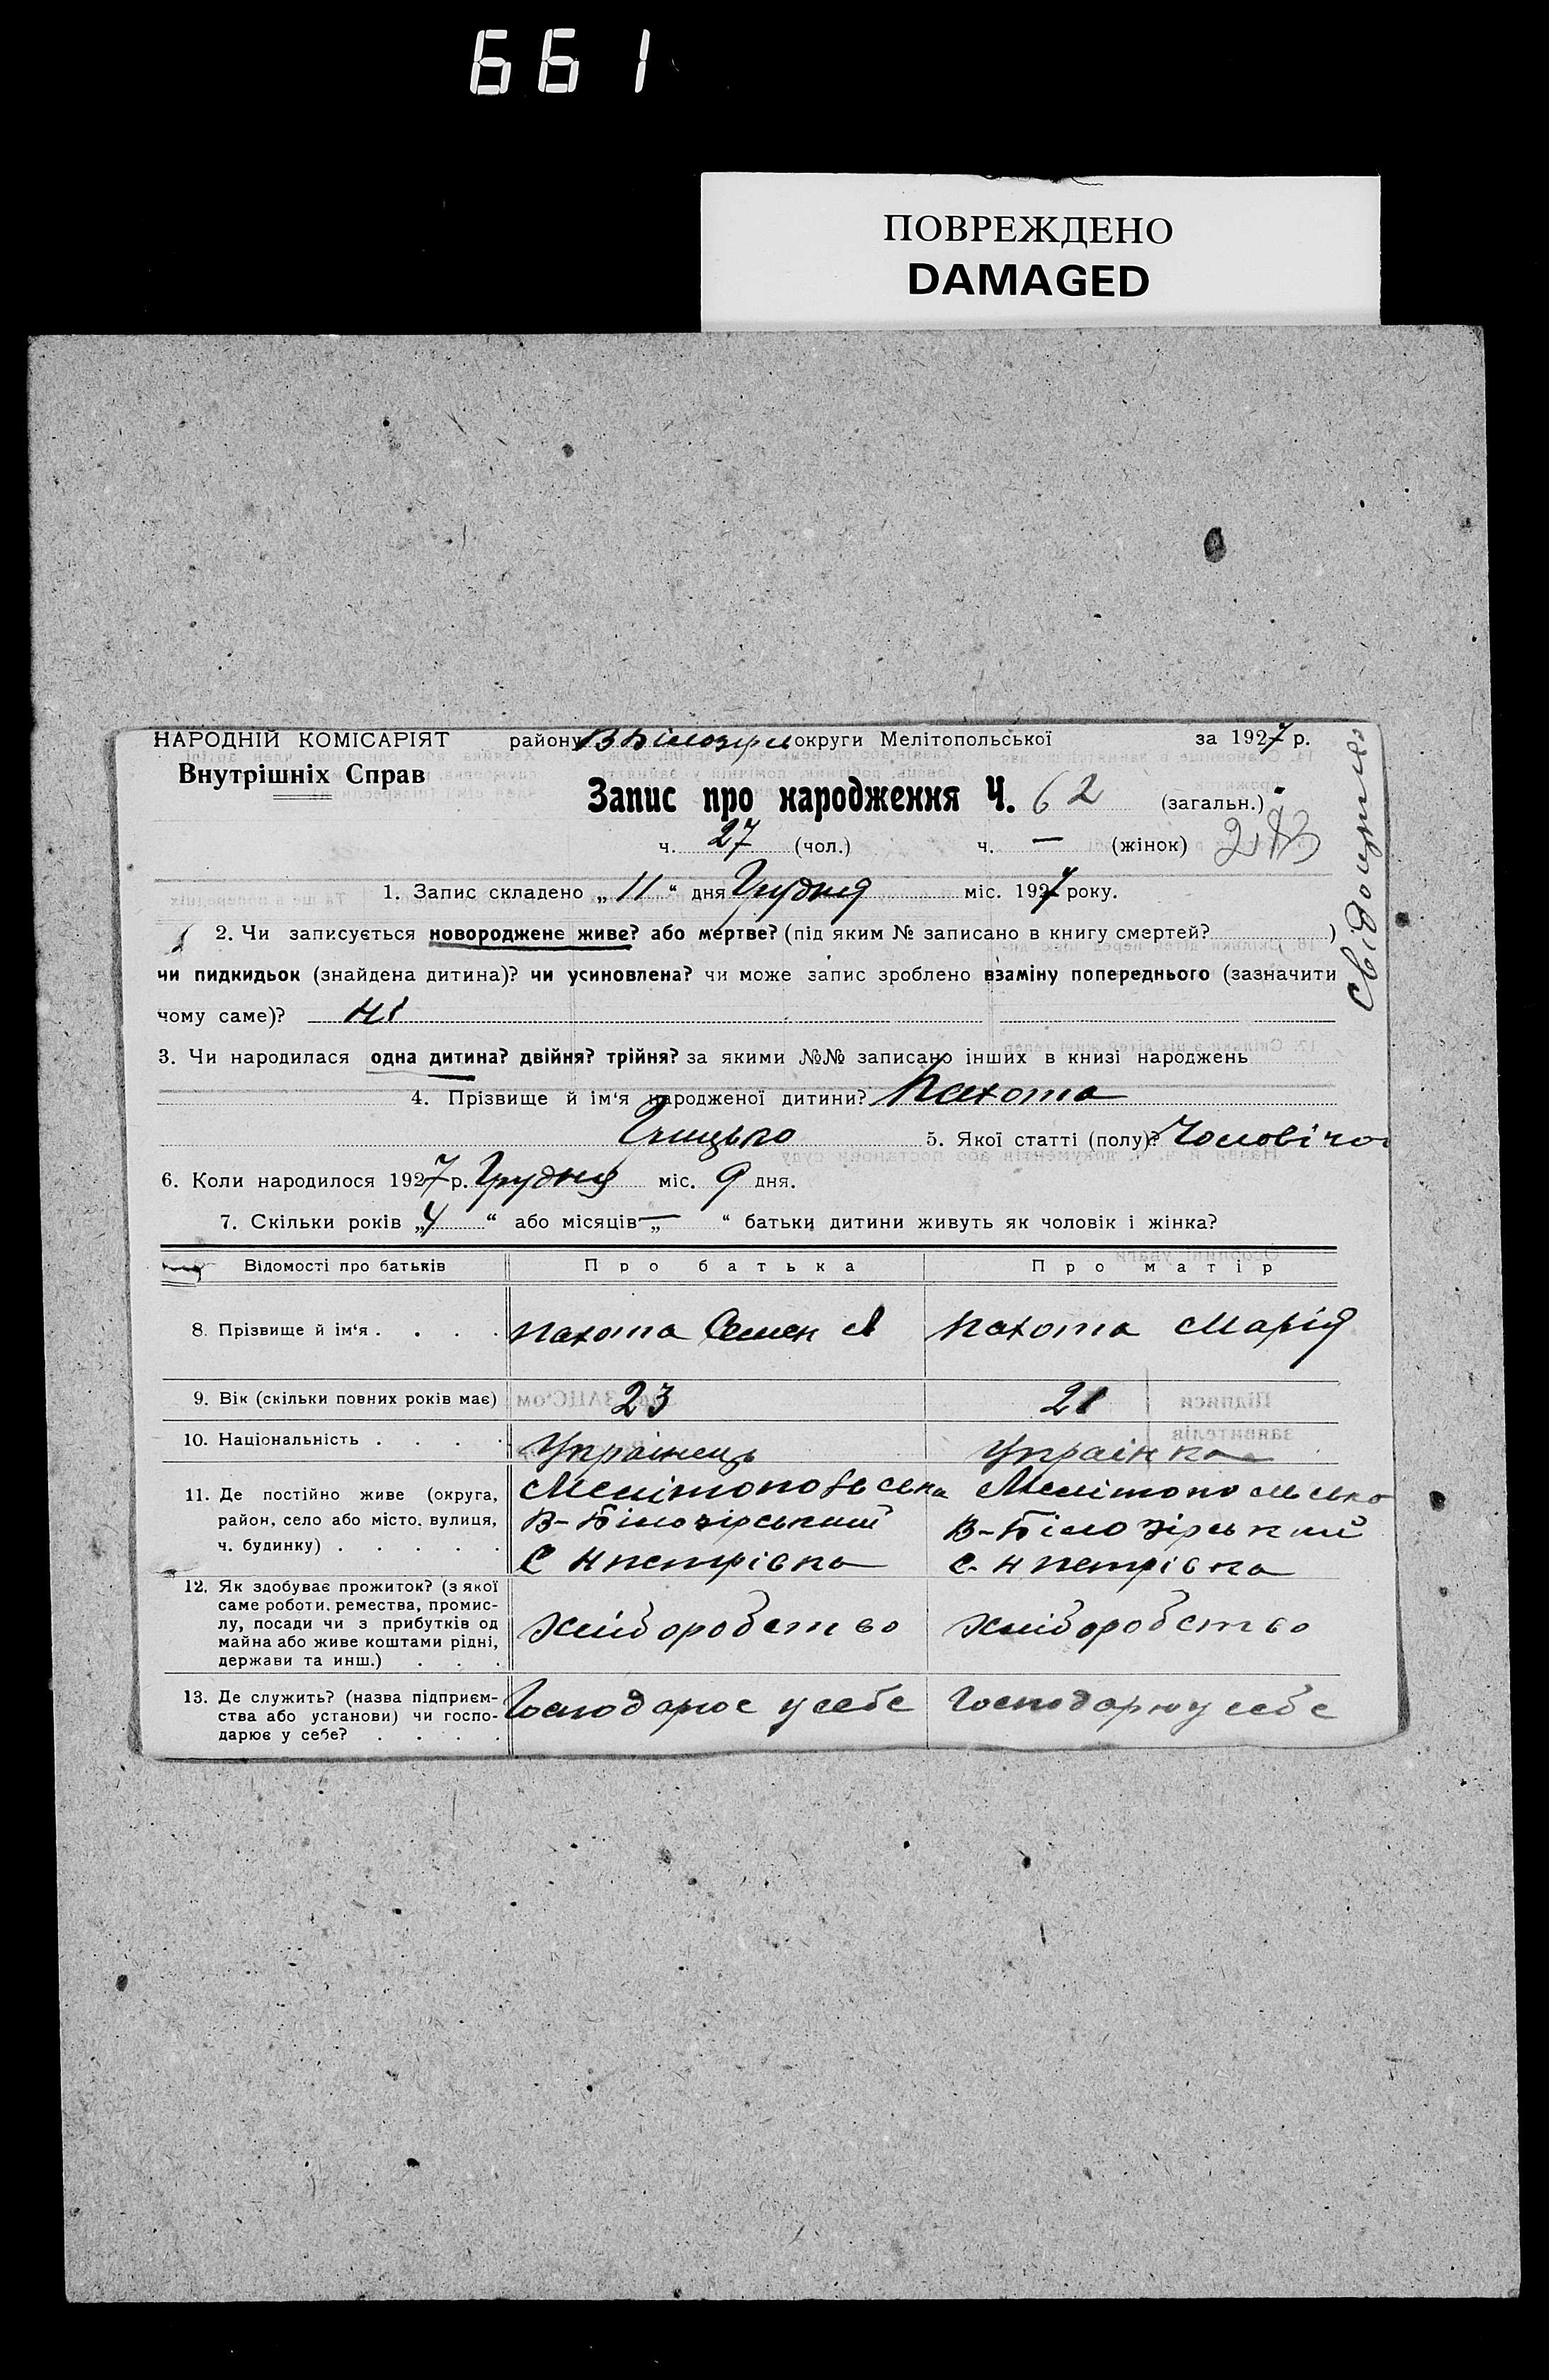 661
ПОВРЕЖДЕНО
DAMAGED
НАРОДНІЙ КОМІСАРІЯТ району В Білозірс округи Мелітопольської за 1927 р.
Внутрішніх Справ
Запис про народження Ч. 62 (загальн.)
ч. 27 (чол.) ч. — (жінок) 283
Свідоцтво
1. Запис складено „ 11 “ дня Грудня міс. 1927 року.
2. Чи записується новороджене живе? або мертве? (під яким № записано в книгу смертей? )
чи пидкидьок (знайдена дитина)? чи усиновлена? чи може запис зроблено взаміну попереднього (зазначити
чому саме)? ні
3. Чи народилася одна дитина? двійня? трійня? за якими №№ записано інших в книзі народжень
4. Прізвище й ім‘я народженої дитини? Пахота
Грицько 5. Якої статті (полу)? Чоловічої
6. Коли народилося 1927 р. Грудня міс. 9 дня.
7. Скільки років „ 4 “ або місяців „ — “ батьки дитини живуть як чоловік і жінка?
Відомості про батьків Про батька Про матір
8. Прізвище й ім‘я . . . . Пахота Семен А Пахота Марія
9. Вік (скільки повних років має) 23 21
10. Національність . . . . Українець Українка
11. Де постійно живе (округа, Мелітопольська Мелітопольсько
район, село або місто, вулиця, В-Білозірський В-Білозірський
ч. будинку) . . . . . С Нпетрівка С. Нпетрівка
12. Як здобуває прожиток? (з якої
саме роботи, ремества, промис-
лу, посади чи з прибутків од Хліборобство Хліборобство
майна або живе коштами рідні,
держави та инш.) . . .
13. Де служить? (назва підприєм- Господарює у себе Господарює у себе
ства або установи) чи госпо-
дарює у себе? . . . .